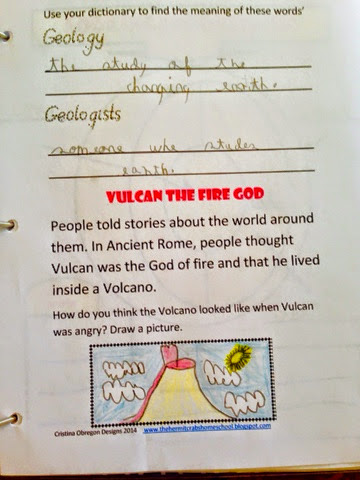 Use your dictionary to find the meaning of these words'
Geology
the study of the
changing earth.
Geologists
someone who studes
earth.
VULCAN THE FIRE GOD
People told stories about the world around
them. In Ancient Rome, people thought
Vulcan was the God of fire and that he lived
inside a Volcano.
How do you think the Volcano looked like when Vulcan
was angry? Draw a picture.
Cristina Obregon Designs 2014 www.thehermitcrabshomeschool.blogspot.com